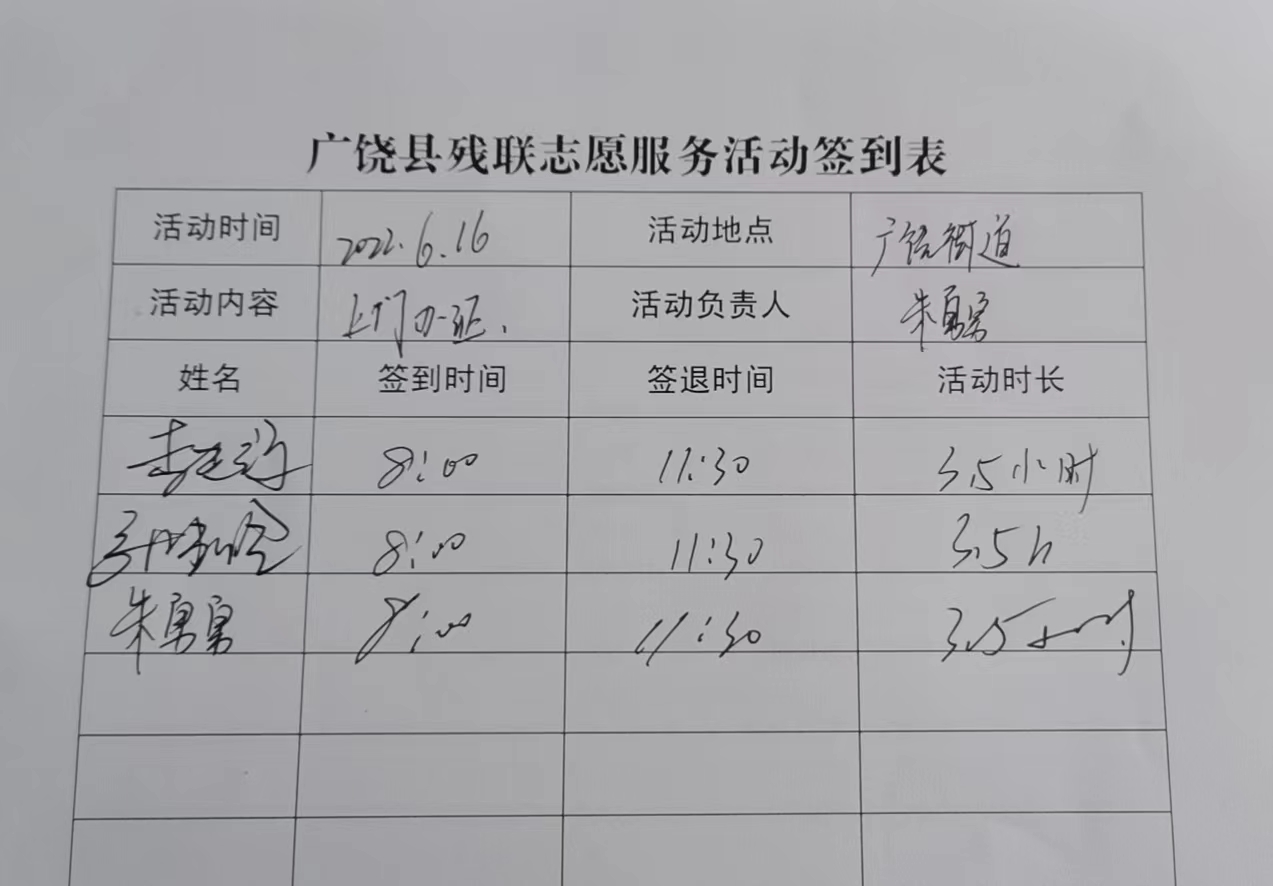 广饶县残联志愿服务活动签到表
活动时间 2022.6.16 活动地点 广饶街道
活动内容 上门办证. 活动负责人 朱勇勇
姓名 签到时间 签退时间 活动时长
8:00 11:30 3.5小时
8:00 11:30 3.5h
朱勇勇 8:00 11:30 3.5小时